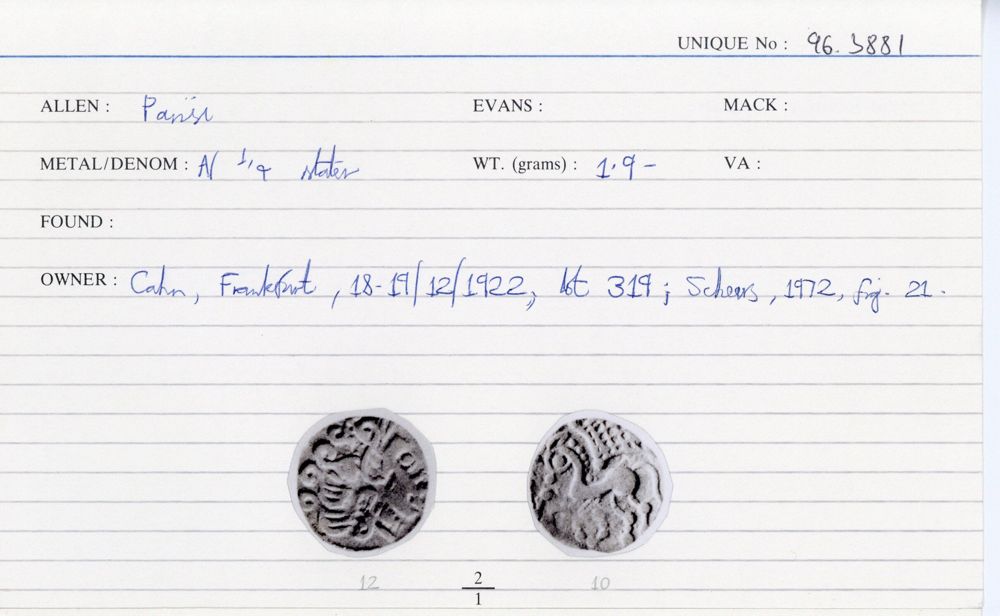 UNIQUE No : 96.3881
ALLEN : Parisi EVANS : MACK :
METAL/DENOM : N 1/4 stater WT. (grams) : 1.9 - VA :
FOUND :
OWNER : Cahn, Frankfurt, 18-19/12/1922, lot 319; Scheers, 1972, fig. 21.
12 2/1 10